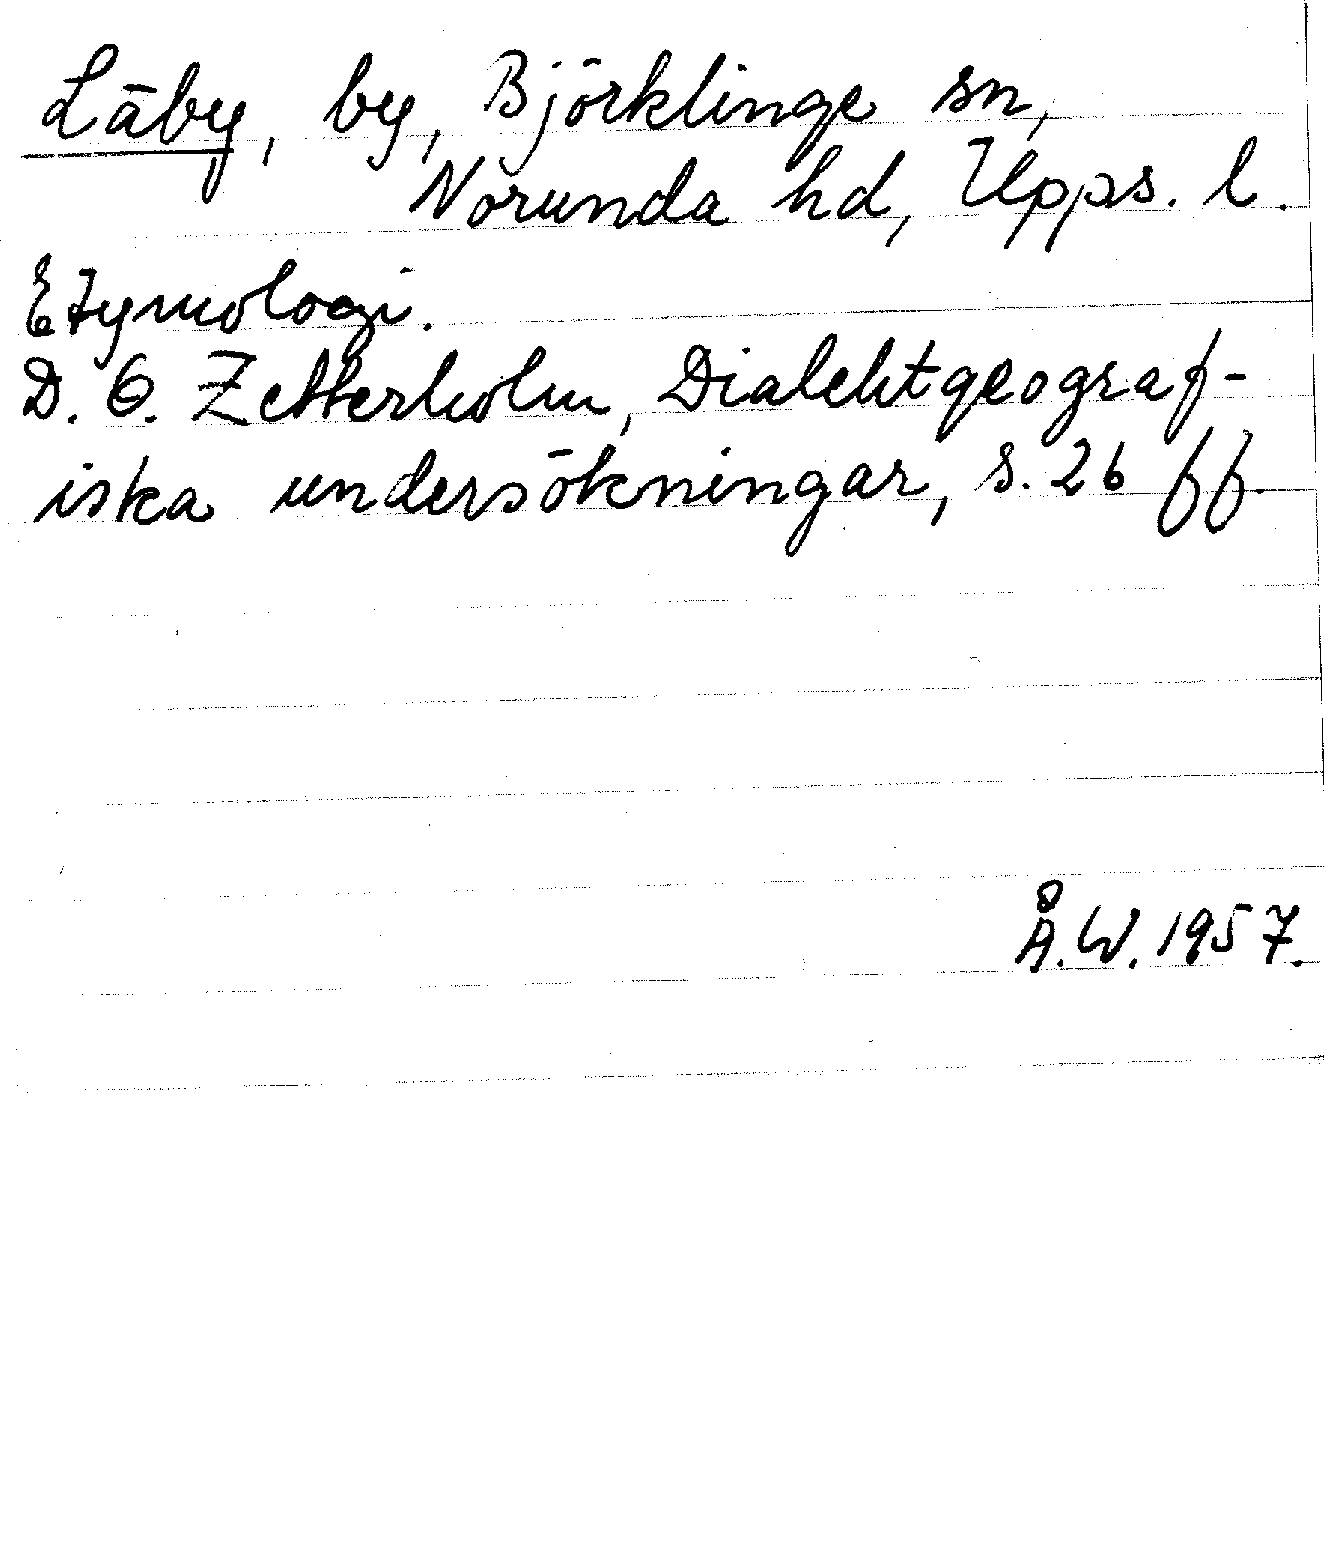 Läby, by, Björklinge sn,
Norunda hd, Upps. l.
Etymologi.
D. O. Zetterholm, Dialektgeograf-
iska undersökningar, s. 26 ff.
Å. W. 1957.